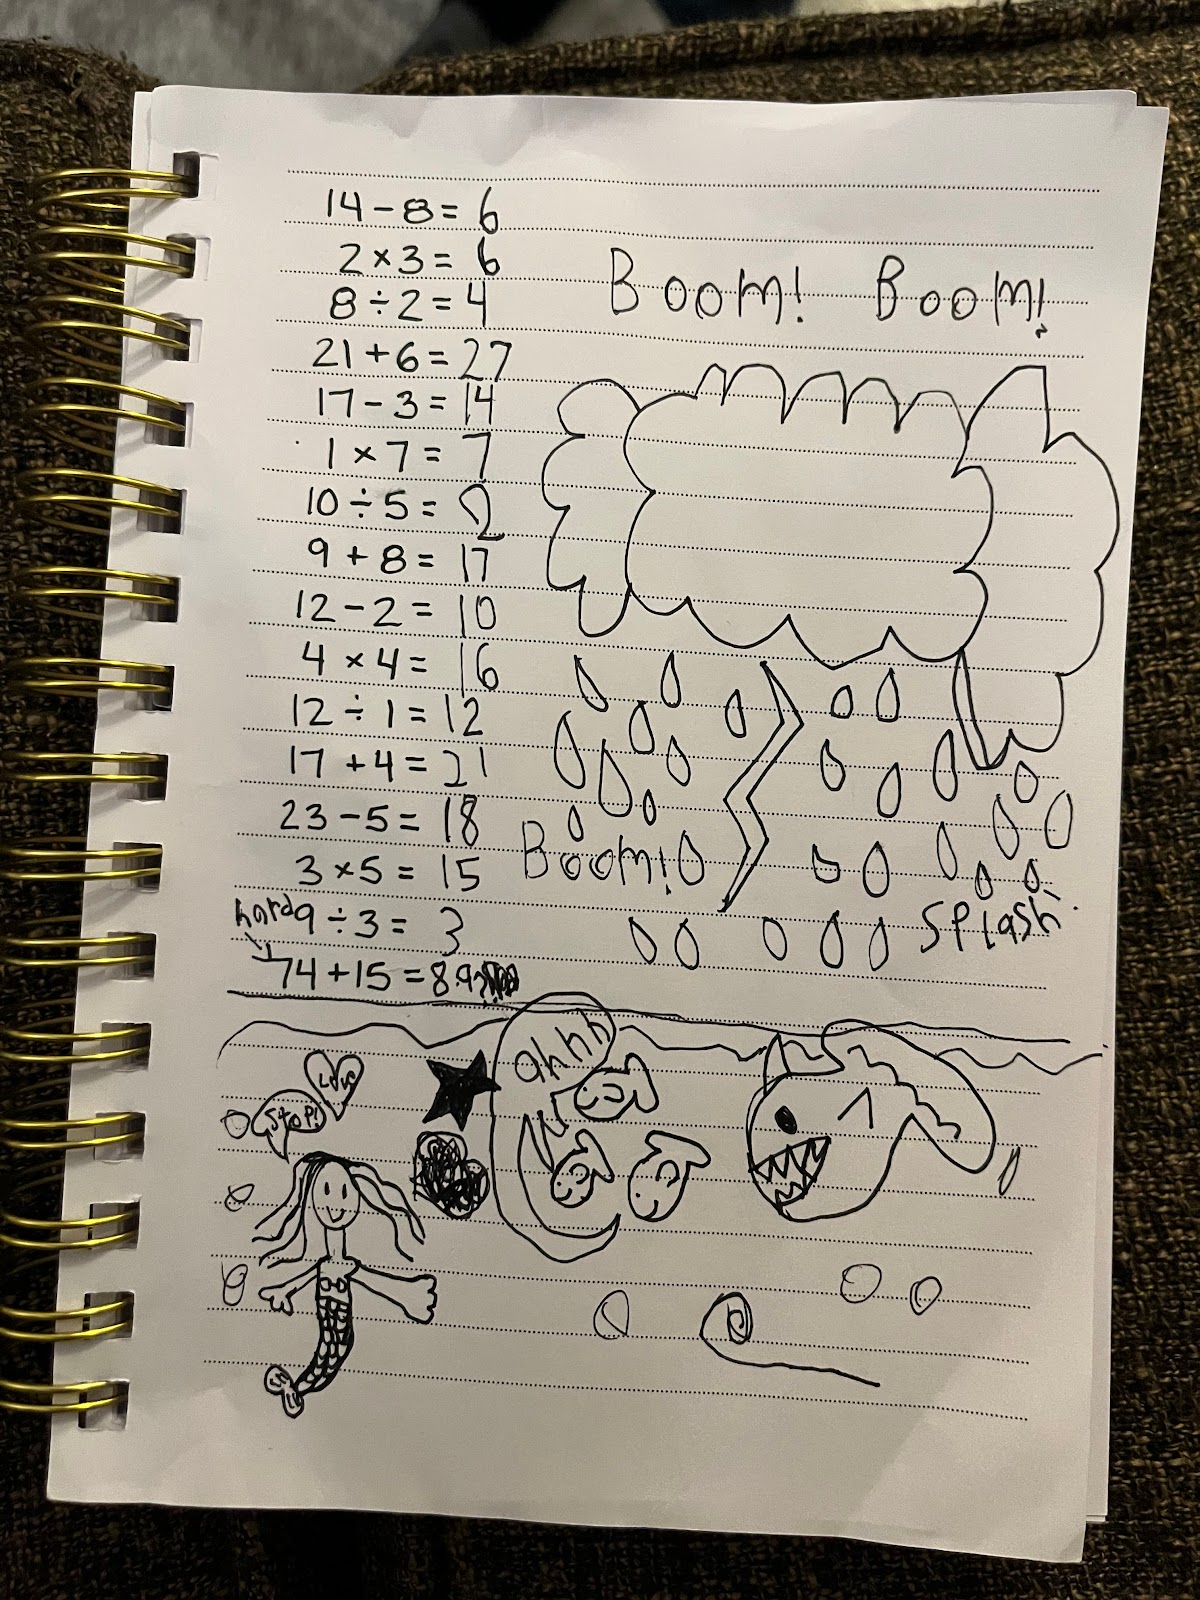 14 - 8 = 6
2 × 3 = 6
8 ÷ 2 = 4
21 + 6 = 27
17 - 3 = 14
1 × 7 = 7
10 ÷ 5 = 2
9 + 8 = 17
12 - 2 = 10
4 × 4 = 16
12 ÷ 1 = 12
17 + 4 = 21
23 - 5 = 18
3 × 5 = 15
hard 9 ÷ 3 = 3
74 + 15 = 89
Boom! Boom!
Boom!
Splash
ahhh
Love
Stop!